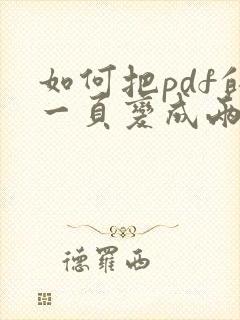 如何把pdf的
一頁變成兩
德羅西